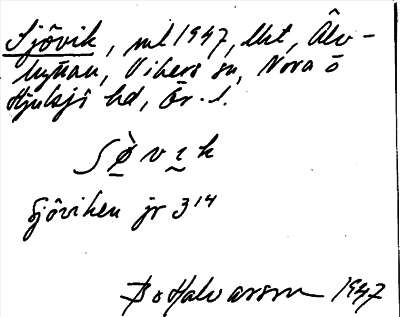 Sjövik, ml 1947, lht, Älv-
hyttan, Vikers sn, Nora o
Hjulsjö hd, Ör. l.
Sjöviken jr 3¹⁴
Bo Halvarsson 1947